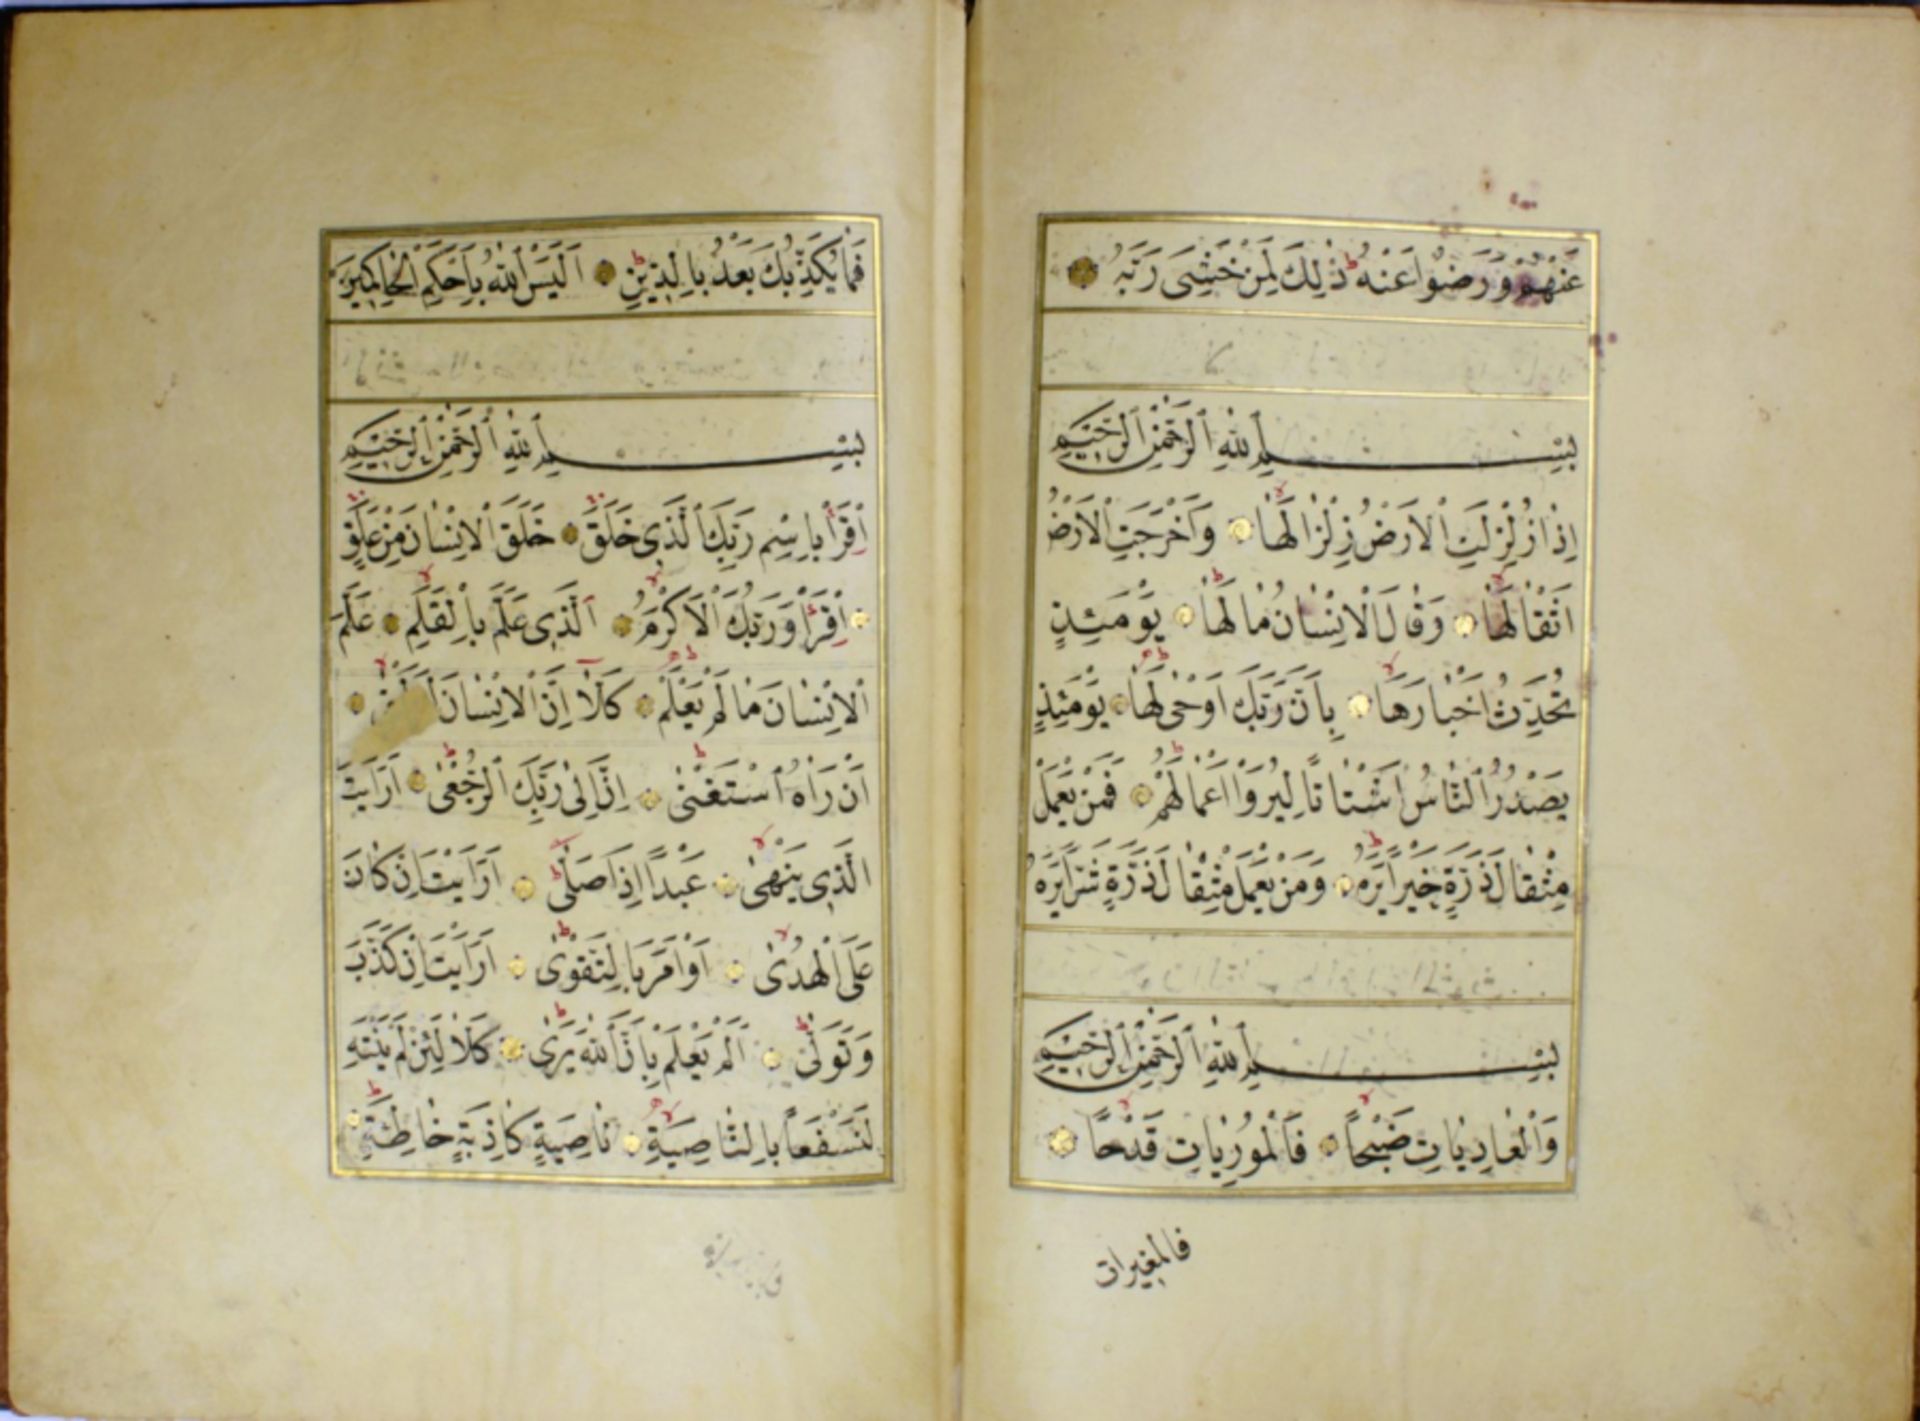 عَنْهُمْ وَرَضُوا عَنْهُ ذٰلِكَ لِمَنْ خَشِيَ رَبَّهُ
بِسْمِ اللّٰهِ الرَّحْمٰنِ الرَّحِيمِ
اِذَا زُلْزِلَتِ الْاَرْضُ زِلْزَالَهَا وَاَخْرَجَتِ الْاَرْضُ
اَثْقَالَهَا وَقَالَ الْاِنْسَانُ مَالَهَا يَوْمَئِذٍ
تُحَدِّثُ اَخْبَارَهَا بِاَنَّ رَبَّكَ اَوْحٰى لَهَا يَوْمَئِذٍ
يَصْدُرُ النَّاسُ اَشْتَاتًا لِيُرَوْا اَعْمَالَهُمْ فَمَنْ يَعْمَلْ
مِثْقَالَ ذَرَّةٍ خَيْرًا يَرَهُ وَمَنْ يَعْمَلْ مِثْقَالَ ذَرَّةٍ شَرًّا يَرَهُ
بِسْمِ اللّٰهِ الرَّحْمٰنِ الرَّحِيمِ
وَالْعَادِيَاتِ ضَبْحًا فَالْمُورِيَاتِ قَدْحًا
فالمغيرات
فَمَا يُكَذِّبُكَ بَعْدُ بِالدِّينِ اَلَيْسَ اللّٰهُ بِاَحْكَمِ الْحَاكِمِينَ
بِسْمِ اللّٰهِ الرَّحْمٰنِ الرَّحِيمِ
اِقْرَأْ بِاسْمِ رَبِّكَ الَّذِي خَلَقَ خَلَقَ الْاِنْسَانَ مِنْ عَلَقٍ
اِقْرَأْ وَرَبُّكَ الْاَكْرَمُ اَلَّذِي عَلَّمَ بِالْقَلَمِ عَلَّمَ
الْاِنْسَانَ مَا لَمْ يَعْلَمْ كَلَّا اِنَّ الْاِنْسَانَ
اَنْ رَاٰهُ اسْتَغْنٰى اِنَّ اِلٰى رَبِّكَ الرُّجْعٰى اَرَاَيْتَ
الَّذِي يَنْهٰى عَبْدًا اِذَا صَلّٰى اَرَاَيْتَ اِنْ كَانَ
عَلَى الْهُدٰى اَوْ اَمَرَ بِالتَّقْوٰى اَرَاَيْتَ اِنْ كَذَّبَ
وَتَوَلّٰى اَلَمْ يَعْلَمْ بِاَنَّ اللّٰهَ يَرٰى كَلَّا لَئِنْ لَمْ يَنْتَهِ
لَنَسْفَعًا بِالنَّاصِيَةِ نَاصِيَةٍ كَاذِبَةٍ خَاطِئَةٍ